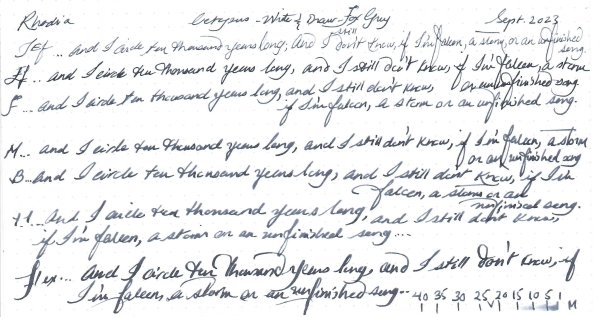 Rhodia Octopus - Write & Draw Fox Grey Sept. 2023
Jef ... and I circle ten thousand years long, and I still don't know, if I'm falcon, a storm, or an unfinished
song.
Ff ... and I circle ten thousand years long, and I still don't know, if I'm falcon, a storm
or an unfinished song
F ... and I circle ten thousand years long, and I still don't know,
if I'm falcon, a storm or an unfinished song.
M... and I circle ten thousand years long, and I still don't know, if I'm falcon, a storm
or an unfinished song
B...and I circle ten thousand years long, and I still don't know, if I'm
falcon, a storm or an
unfinished song.
and I circle ten thousand years long, and I still don't know,
if I'm falcon, a storm or an unfinished song...
flex... and I circle ten thousand years long, and I still don't know, if
I'm falcon, a storm or an unfinished song... 40 35 30 25 20 15 10 5 1
M